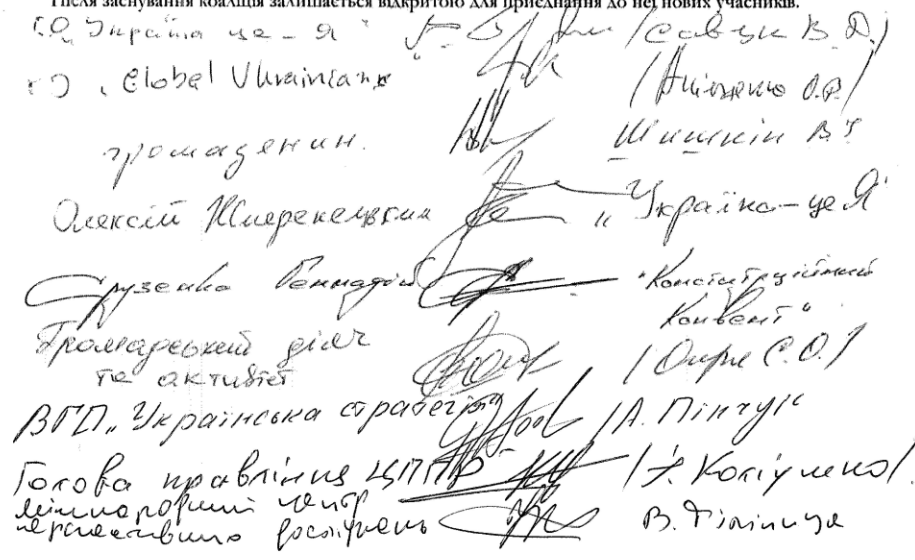 Після заснування коаліція залишається відкритою для приєднання до неї нових учасників.
Г.О. "Україна це – Я" /Савчук В.Д./
ГО "Global Ukrainians"
громадянин. Шишкін В.І.
Олексій "Україна – це Я"
Друзенко Геннадій "Конституційний
Конвент"
Громадський діяч
та активіст С.О./
ВГП "Українська стратегія" /А. Пінчук
Голова правління ЦППР /І. Коліушко/
міжнародний центр
перспективних досліджень